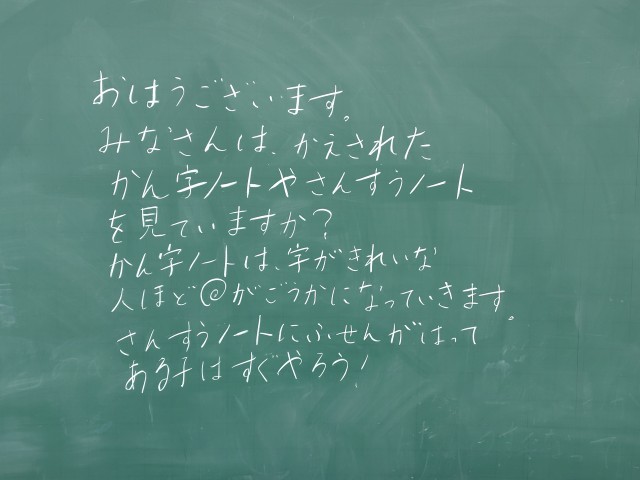 おはうございます。
みなさんは、かえされた
かん字ノートやさんすうノート
を見ていますか?
かん字ノートは、字がきれいな
人ほど@がごうかになっていきます。
さんすうノートにふせんがはって
ある子はすぐやろう!